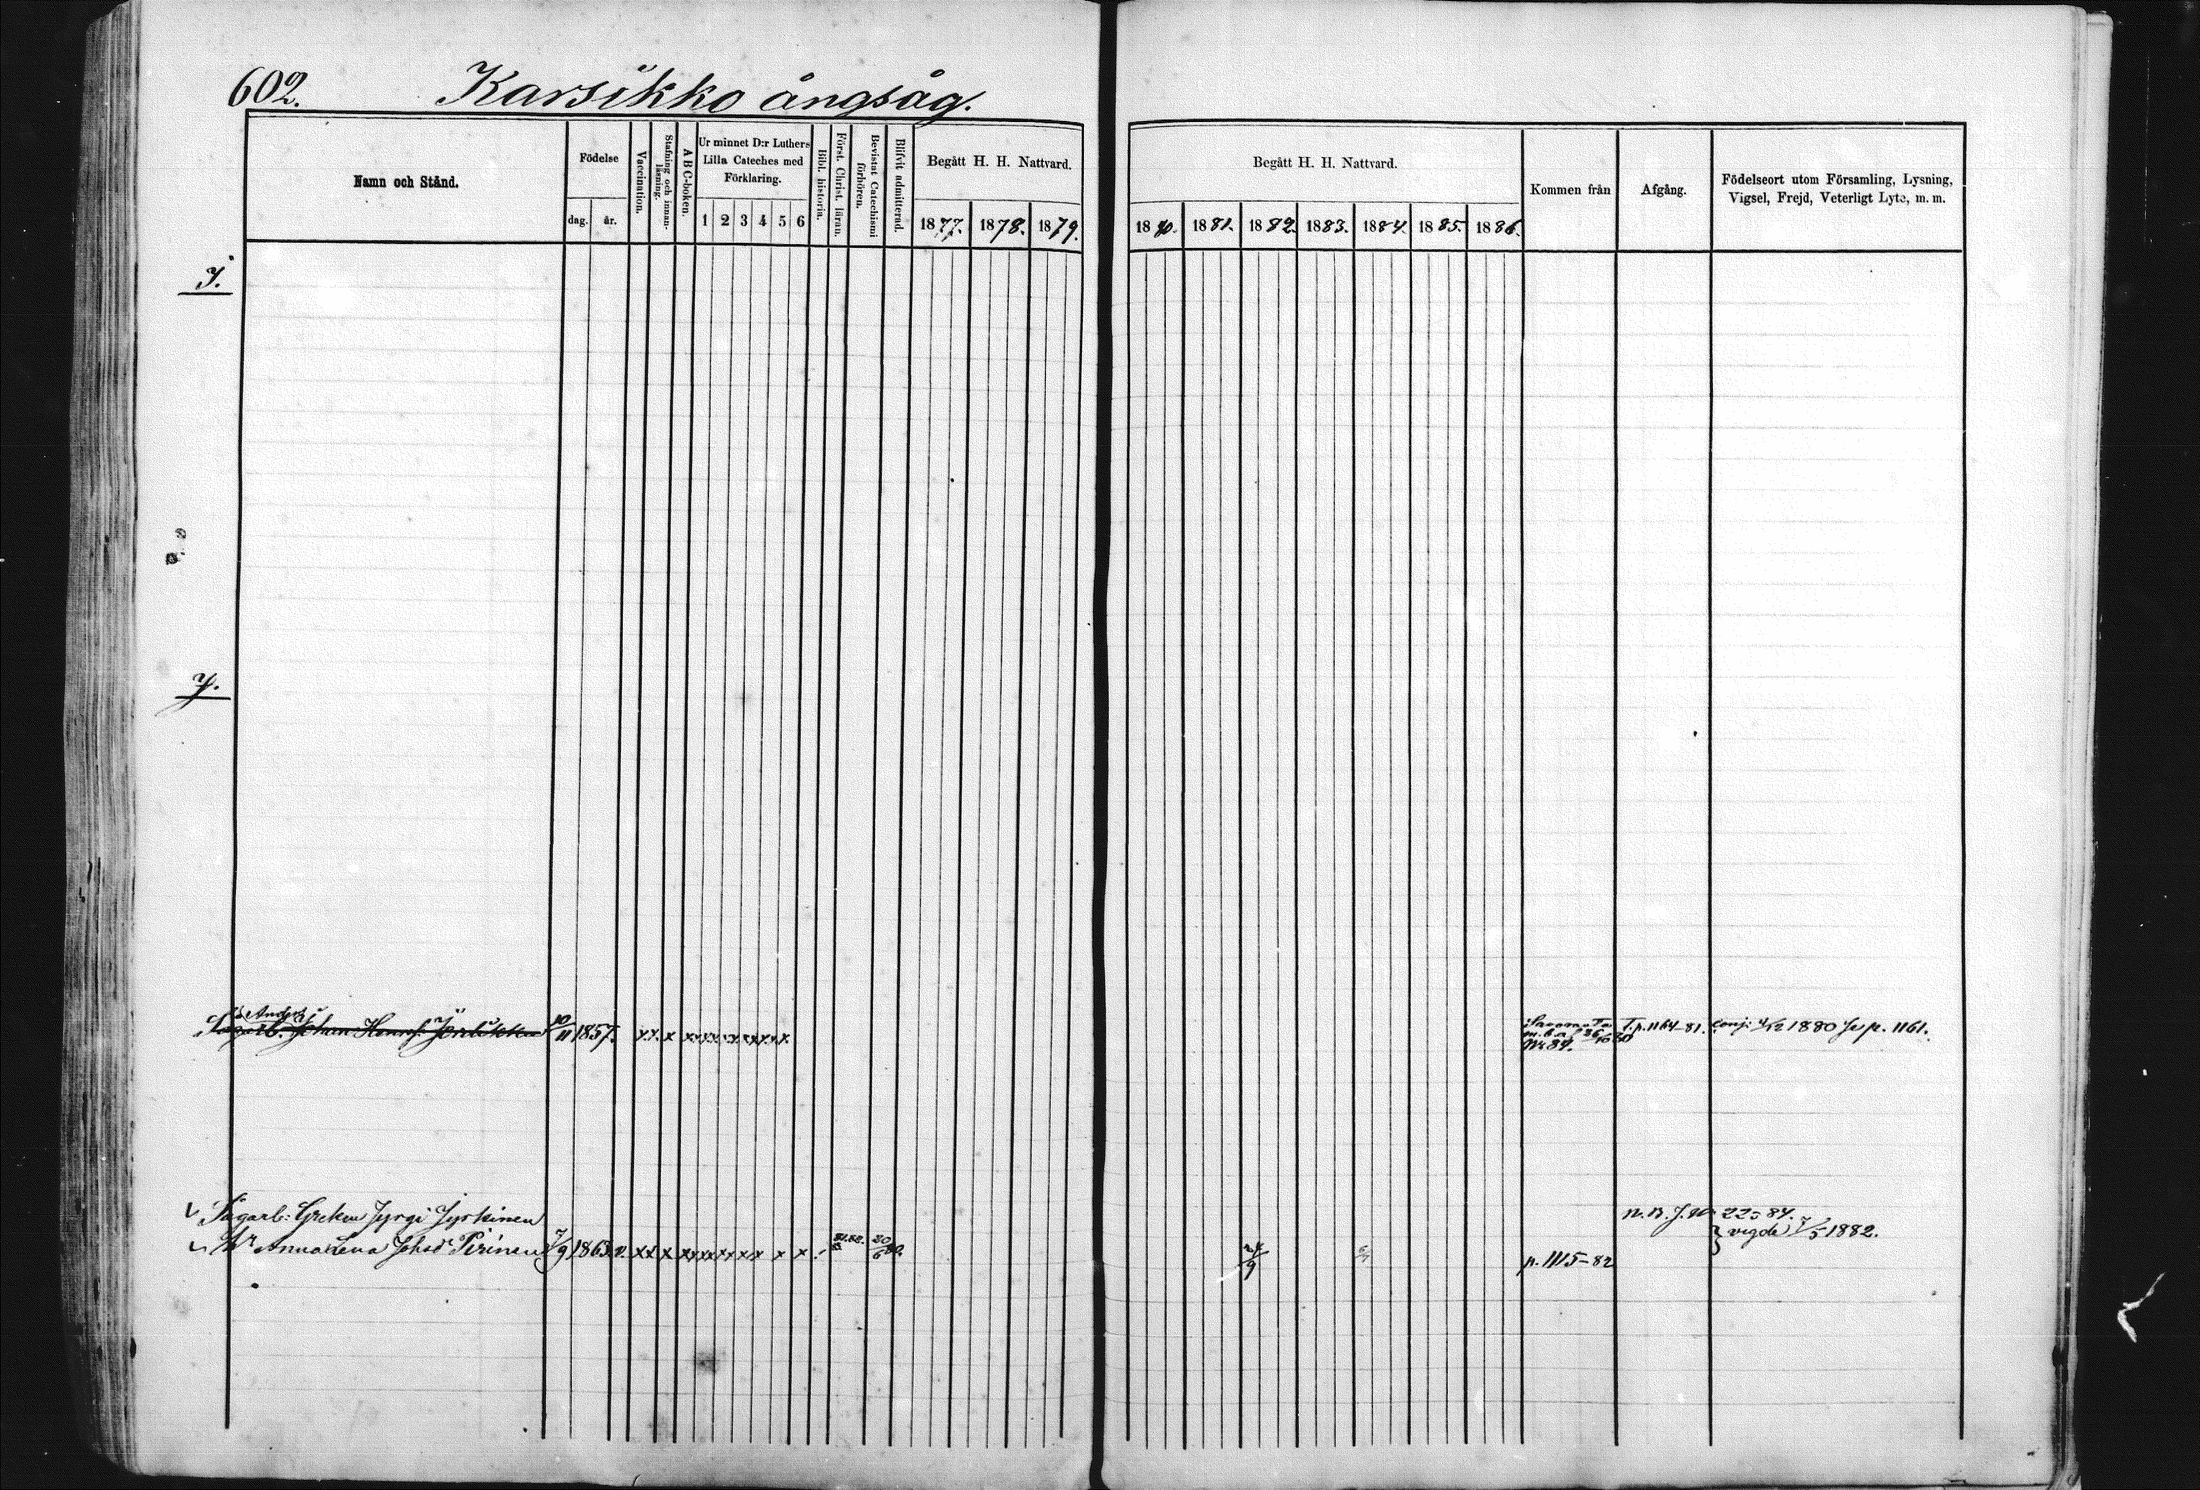 602. Karsikko ångsåg.
Namn och Stånd.
Födelse
dag. år.
Vaccination.
Stafning och innanläsning.
A B C-boken.
Ur minnet D:r Luthers
Lilla Cateches med
Förklaring.
1 2 3 4 5 6
Bibl. historia.
Först. Christ. läran.
Bevistat Catechismi
förhören.
Blifvit admitterad.
Begått H. H. Nattvard.
1877. 1878. 1879.
Begått H. H. Nattvard.
1880. 1881. 1882. 1883. 1884. 1885. 1886.
Kommen från
Afgång.
Födelseort utom Församling, Lysning,
Vigsel, Frejd, Veterligt Lyte, m. m.
I.
Y.
Anders
Sågarb. Johan Jörlikken 10/11 1857. xx x xx xx xx xx xx x T. p. 1164-81. conj. 4/12 1880 p. 1161.
No 89.
Sågarb: Greken Jyrgi Jyrkinen 22 5 84.
Hr Anna Lena Johsdr Pirinen 7/9 1863 v. xx x xx xx xx xx x x 81.82. 20/6 80. 24/9 p. 1115-82 } vigde 7/5 1882.